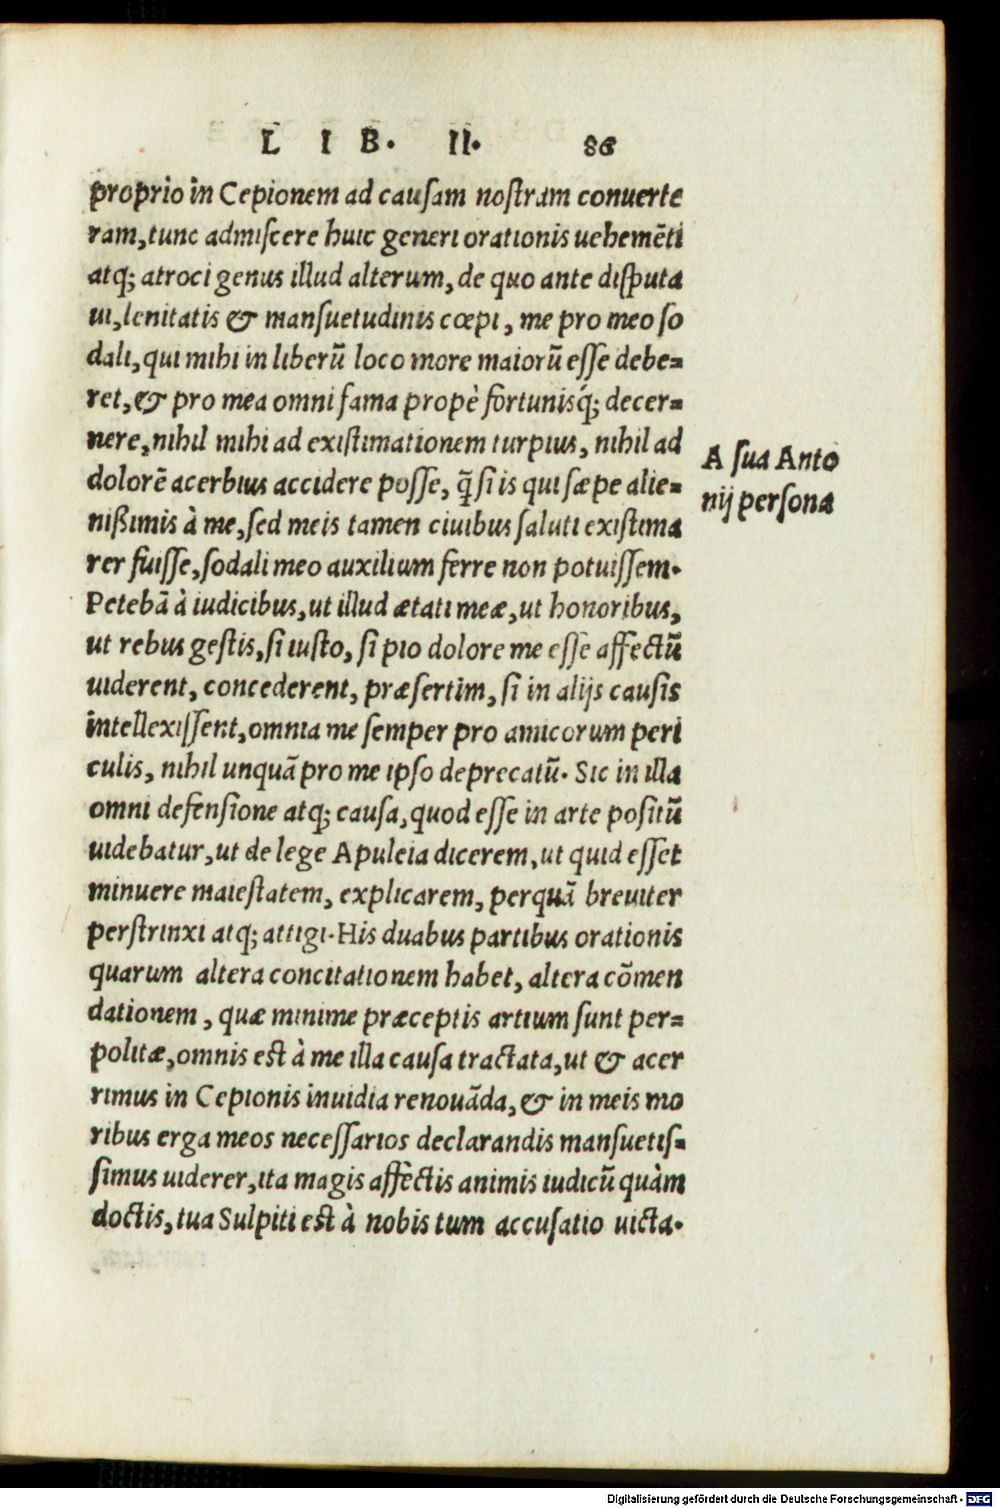 LIB. II. 86
proprio in Cepionem ad causam nostram conuerte
ram, tunc admiscere huic generi orationis uehemēti
atq; atroci genus illud alterum, de quo ante disputa
ui, lenitatis & mansuetudinis cœpi, me pro meo so
dali, qui mihi in liberū loco more maiorū esse debe=
ret, & pro mea omni fama propè fortunisq́; decer=
nere, nihil mihi ad existimationem turpius, nihil ad
dolorē acerbius accidere posse, q̄ si is qui sæpe alie=
nißimis à me, sed meis tamen ciuibus saluti existima
rer fuisse, sodali meo auxilium ferre non potuissem.
Petebā à iudicibus, ut illud ætati meæ, ut honoribus,
ut rebus gestis, si iusto, si pio dolore me esse affectū
uiderent, concederent, præsertim, si in alijs causis
intellexissent, omnia me semper pro amicorum peri
culis, nihil unquā pro me ipso deprecatū. Sic in illa
omni defensione atq; causa, quod esse in arte positū
uidebatur, ut de lege Apuleia dicerem, ut quid esset
minuere maiestatem, explicarem, perquā breuiter
perstrinxi atq; attigi. His duabus partibus orationis
quarum altera concitationem habet, altera cōmen
dationem, quæ minime præceptis artium sunt per=
politæ, omnis est à me illa causa tractata, ut & acer
rimus in Cepionis inuidia renouāda, & in meis mo
ribus erga meos necessarios declarandis mansuetis=
simus uiderer, ita magis affectis animis iudicū quàm
doctis, tua Sulpiti est à nobis tum accusatio uicta.
A sua Anto
nij persona
Digitalisierung gefördert durch die Deutsche Forschungsgemeinschaft - DFG